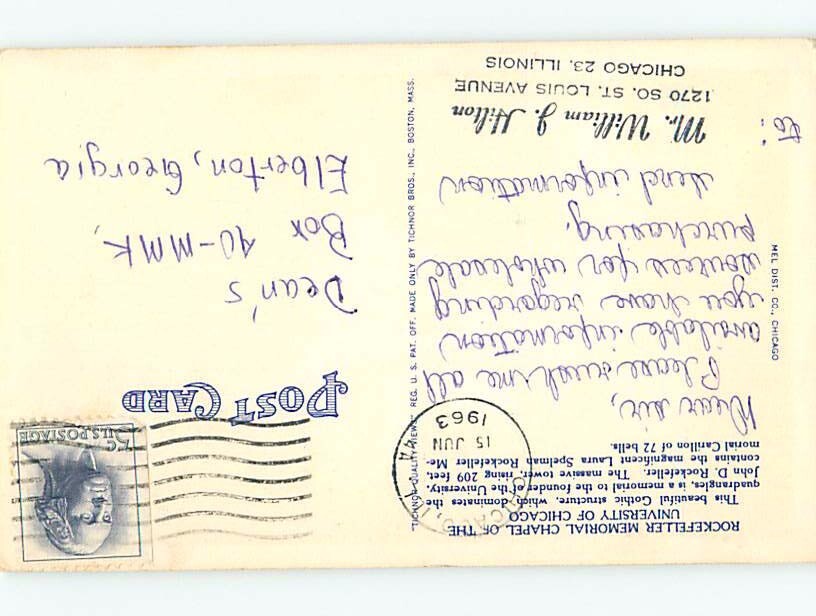 ROCKEFELLER MEMORIAL CHAPEL OF THE
UNIVERSITY OF CHICAGO
This beautiful Gothic structure, which dominates the
quadrangles, is a memorial to the founder of the University,
John D. Rockefeller. The massive tower, rising 209 feet,
contains the magnificent Laura Spelman Rockefeller Me-
morial Carillon of 72 bells.
Dear sir,
Please rush me all
available information
you have regarding
sources for wholesale
purchasing.
send information
to:
Mr. William J. Hilton
1270 SO. ST. LOUIS AVENUE
CHICAGO 23, ILLINOIS
MEL DIST. CO., CHICAGO
"TICHNOR QUALITY VIEWS" REG. U. S. PAT. OFF. MADE ONLY BY TICHNOR BROS., INC., BOSTON, MASS.
CHICAGO, IL
15 JUN
1963
U.S. POSTAGE
POST CARD
Dean's
Box 40-MMK,
Elberton, Georgia